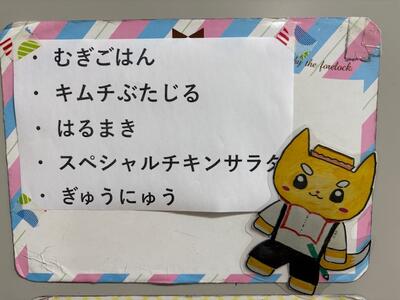 ・ むぎごはん
・ キムチぶたじる
・ はるまき
・ スペシャルチキンサラダ
・ ぎゅうにゅう
by the forelock.